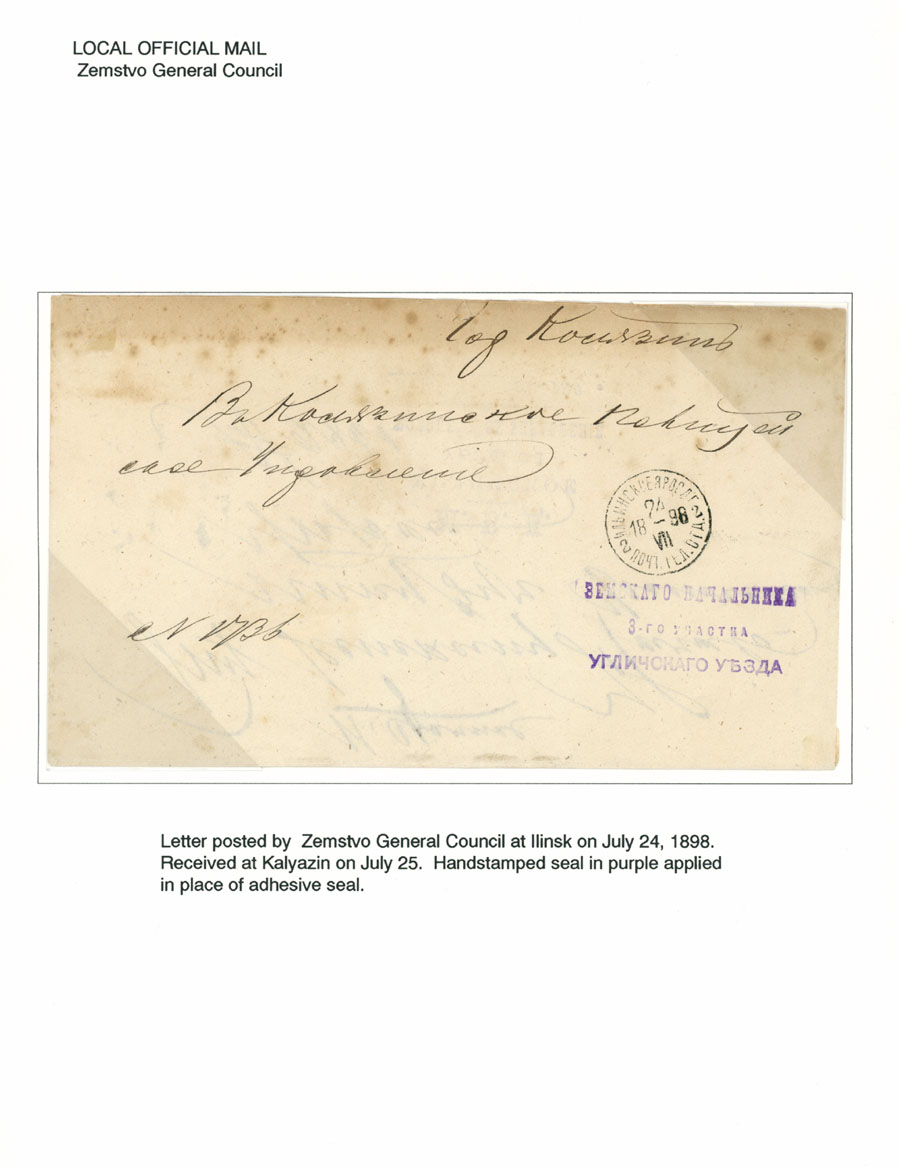 LOCAL OFFICIAL MAIL
Zemstvo General Council
Год Колязинъ
Въ Колязинское Полицей
ское Управление
ИЛЬИНСКОЕ ЯРОСЛ. Г.
24
18 – 98
VII
ПОЧТ. ТЕЛ. ОТД.
ЗЕМСКАГО НАЧАЛЬНИКА
3-го УЧАСТКА
УГЛИЧСКАГО УѢЗДА
Letter posted by Zemstvo General Council at Ilinsk on July 24, 1898.
Received at Kalyazin on July 25. Handstamped seal in purple applied
in place of adhesive seal.